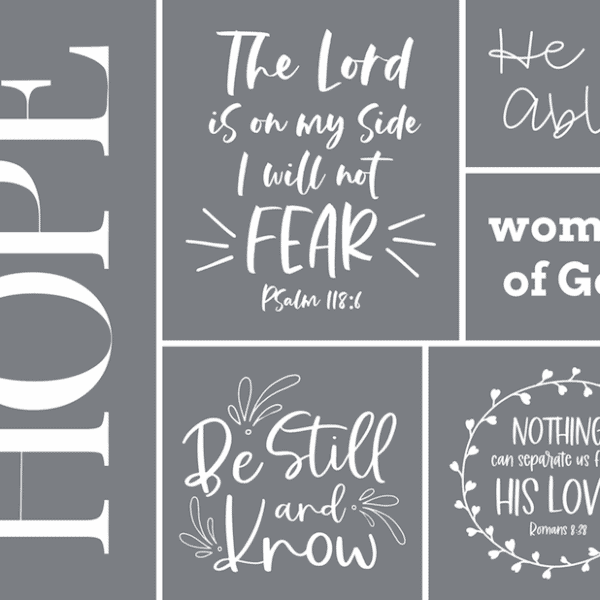 HOPE
The Lord
is on my side
I will not
FEAR
Psalm 118:6
He
Abl
wom
of Go
Be Still
and
Know
NOTHING
can separate us f
HIS LOV
Romans 8:38